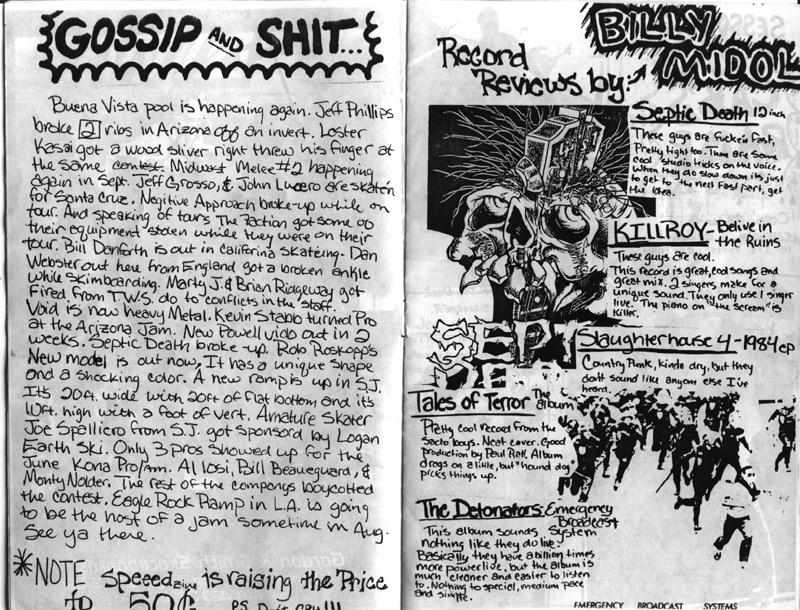 GOSSIP AND SHIT...
Buena Vista pool is happening again. Jeff Phillips
broke 2 ribs in Arizona off an invert. Lester
Kasai got a wood sliver right threw his finger at
the same contest. Midwest Melee #2 happening
again in Sept. Jeff Grosso, & John Lucero are skaten
for Santa Cruz. Negitive Approach broke-up while on
tour. And speaking of tours The Faction got some of
their equipment stolen while they were on their
tour. Bill Danforth is out in California skateing. Dan
Webster out here from England got a broken ankle
while Skimboarding. Marty J. & Brian Ridgeway got
fired from T.W.S. do to conflicts in the staff.
Void is now heavy Metal. Kevin Stabb turned Pro
at the Arizona Jam. New Powell vido out in 2
weeks. Septic Death broke-up. Rob Roskopp's
New model is out now, It has a unique shape
and a shocking color. A new ramp is up in S.J.
Its 20ft. wide with 20ft of flat bottom and its
10ft. high with a foot of vert. Amature Skater
Joe Spalliero from S.J. got sponsord by Logan
Earth Ski. Only 3 pros showed up for the
June Kona Pro/Am. Al Losi, Bill Beaureguard, &
Monty Nolder. The rest of the companys boycotted
the contest. Eagle Rock Ramp in L.A. is going
to be the host of a jam sometime in Aug.
See ya there.
*NOTE Speeedzine is raising the Price
to 50¢
Record
Reviews by:→
BILLY
MIDOL
Septic Death 12 inch
These guys are Fucke'n Fast,
Pretty tight too. There are some
cool studio tricks on the voice.
When they do slow down its just
to get to the next fast part, get
the idea.
KILLROY - Belive in
the Ruins
These guys are cool.
This record is great, cool songs and
great mix. 2 singers make for a
unique sound. They only use 1 singer
live. The piano on "the scream" is
Killer.
Slaughterhouse 4 - 1984 ep
Country Punk, kinda dry, but they
don't sound like anyone else I've
heard.
Tales of Terror The
album
Pretty cool record from the
Sacto boys. Neat cover. Good
production by Paul Rat. Album
drags on a little, but "hound dog"
picks things up.
The Detonators: Emergency
Broadcast
System
This album sounds
nothing like they do live.
Basically they have a billion times
more power live, but the album is
much cleaner and easier to listen
to. Nothing to special, medium pace
and simple.
EMERGENCY BROADCAST SYSTEMS